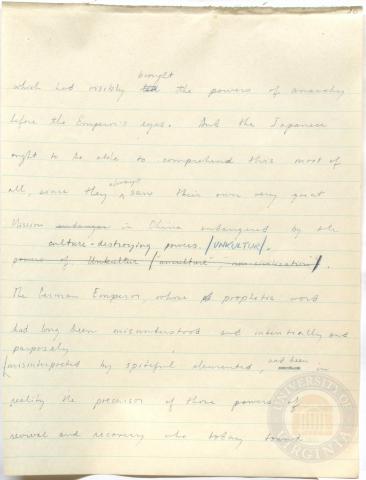 brought
which had visibly the powers of anarchy
before the Emperor's eyes. And the Japanese
ought to be able to comprehend this most of
all, since they always saw their own very great
Mission endanger in China endangered by the
culture-destroying powers. /UNKULTUR/.
powers of Unkultur ("unculture",
The German Emperor, whose prophetic word
had long been misunderstood and intentionally and
purposely
misinterpreted by spiteful elements, had been in
reality the precursor of those powers of
revival and recovery who today
UNIVERSITY OF VIRGINIA